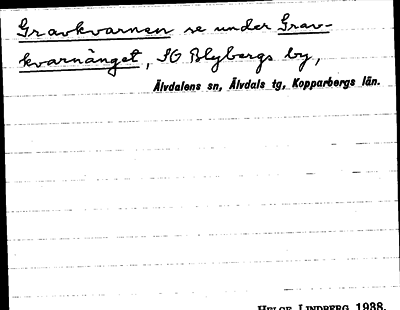 Gravkvarnen se under Grav-
kvarnänget, SG Blybergs by,
Älvdalens sn, Älvdals tg, Kopparbergs län.
HELGE LINDBERG 1938.